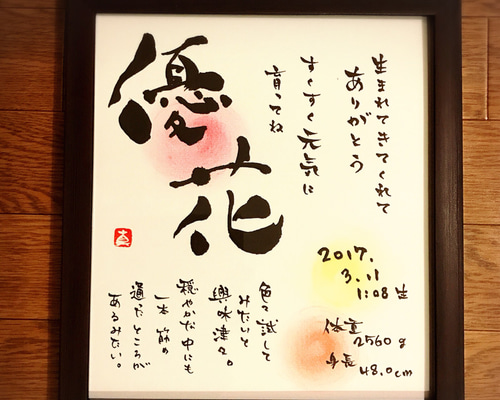 生まれてきてくれて
ありがとう
すくすく元気に
育ってね
優花
2017.
3.11
1:08 生
体重
2560g
身長
48.0cm
色々試して
みたいと
興味津々。
穏やかな中にも
一本筋の
通ったところが
あるみたい。